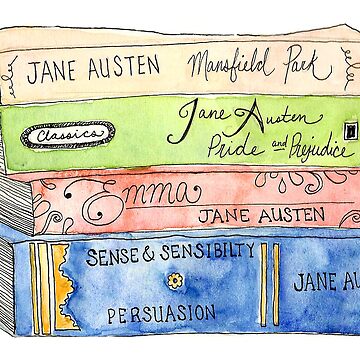 JANE AUSTEN Mansfield Park
Classics Jane Austen
Pride and Prejudice
Emma
JANE AUSTEN
SENSE & SENSIBILTY
JANE AU
PERSUASION